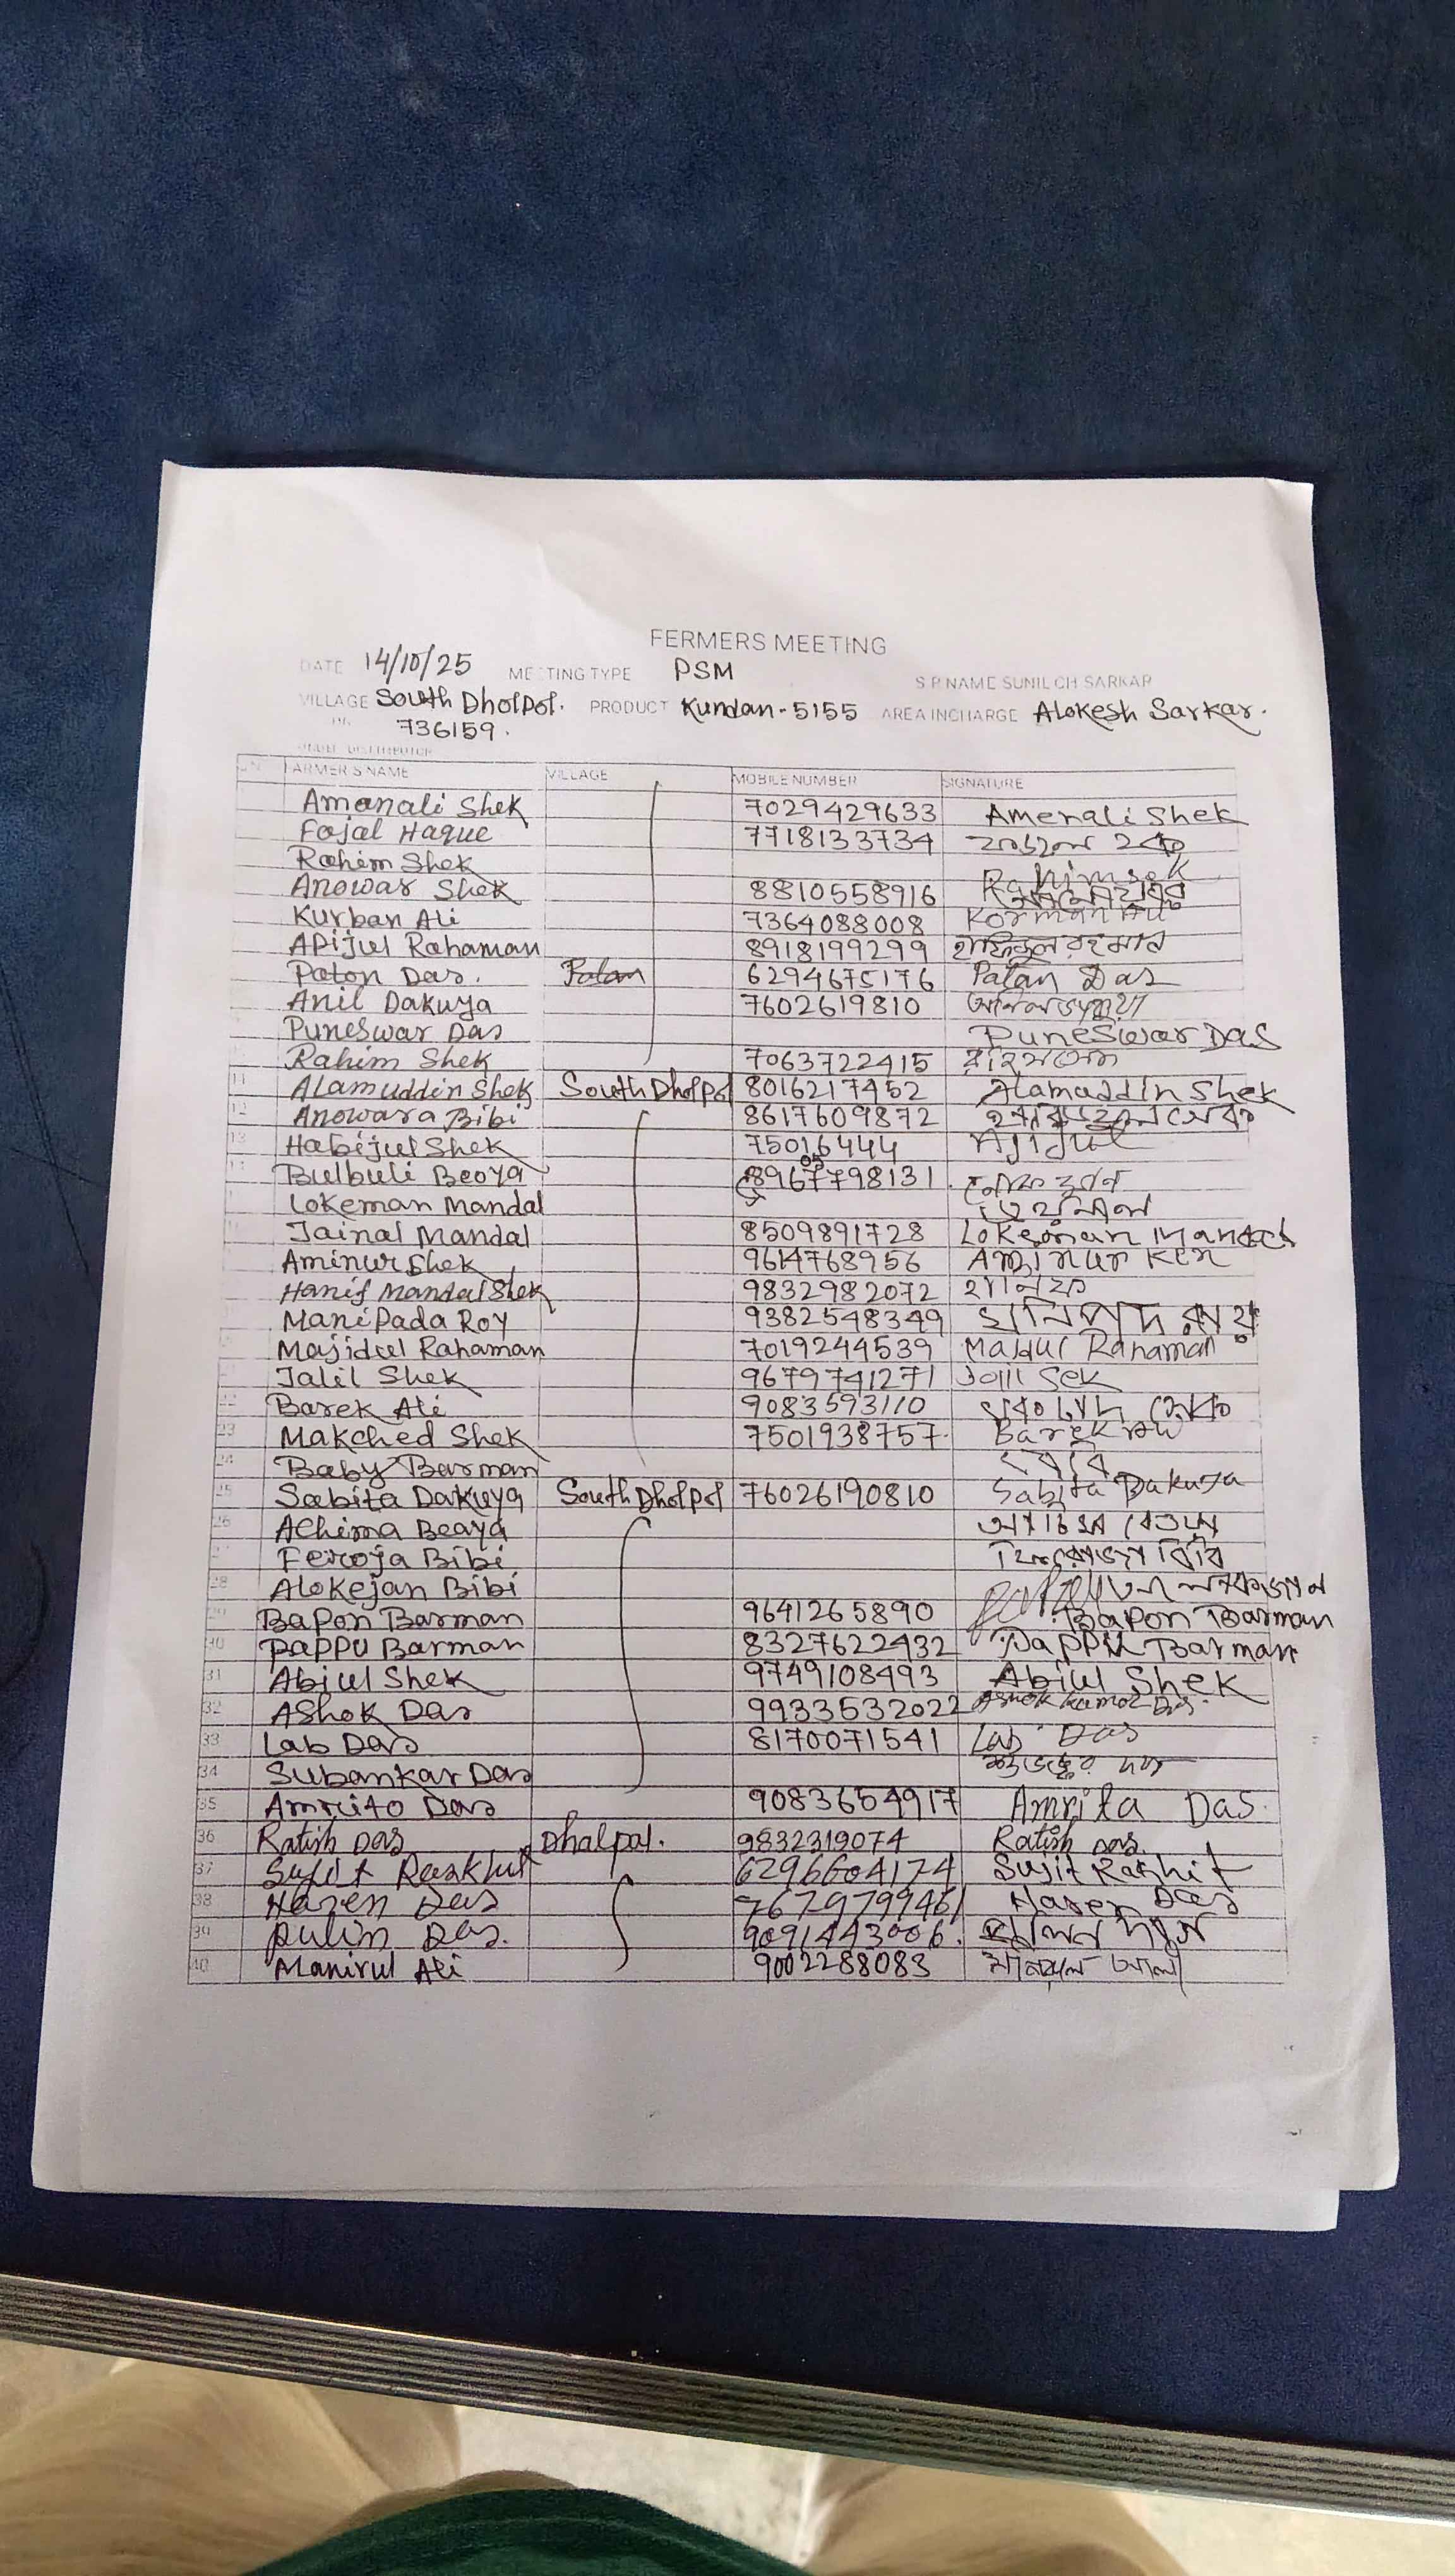 FERMERS MEETING
DATE 14/10/25 MEETING TYPE PSM S.R NAME SUNIL CH SARKAR
VILLAGE South Dholpol. PRODUCT Kundan-5155 AREA INCHARGE Alokesh Sarkar.
736159.
FARMER'S NAME VILLAGE MOBILE NUMBER SIGNATURE
Amanali Shek 7029429633 Amenali Shek
Fojal Haque 7718133734
Rahim Shek Rahim sek
Anowar Shek 8810558916
Kurban Ali 7364088008
Apijul Rahaman 8918199299
Paton Das. Palan 6294675176 Palan Das
Anil Dakuya 7602619810
Puneswar Das Puneswar Das
Rahim Shek 7063722415
11 Alamuddin Shek South Dholpol 8016217452 Alamuddin Shek
12 Anowara Bibi 8617609872
13 Habijul Shek Ajijul
Bulbuli Beoya 8967798131.
Lokeman Mandal
Jainal Mandal 8509891728 Lokeman Mandal
Aminur Shek 9614768956 Aminur
Hanif Mandal Shek 9832982072
Manipada Roy 9382548349 মনিপদ রায়
Majidul Rahaman 7019244539 Rahaman
Jalil Shek 9679741271 Jalil Sek
22 Barek Ali 9083593110
23 Makched Shek 7501938757. Barek
24 Baby Barman
25 Sabita Dakuya South Dholpol 76026190810 Sabita Dakuya
26 Achima Beaya
Feroja Bibi ফিরোজা বিবি
28 Alokejan Bibi
29 Bapon Barman 9641265890 Bapon Barman
30 Pappu Barman 8327622432 Pappu Barman
31 Abiul Shek 9749108493 Abiul Shek
32 Ashok Das 9933532022 Ashok kamol Das.
33 Lab Das 8170071541 Lab Das
34 Subankar Das
35 Amrito Das 9083654917 Amrita Das.
36 Ratish Das Dhalpal. 9832319074 Ratish Das.
37 Sujit Raskhit 6296604174 Sujit Rakhit
38 Naren Das 7679799461 Naren Das
39 Pulin Das. 9091443006.
40 Manirul Ali 9002288083